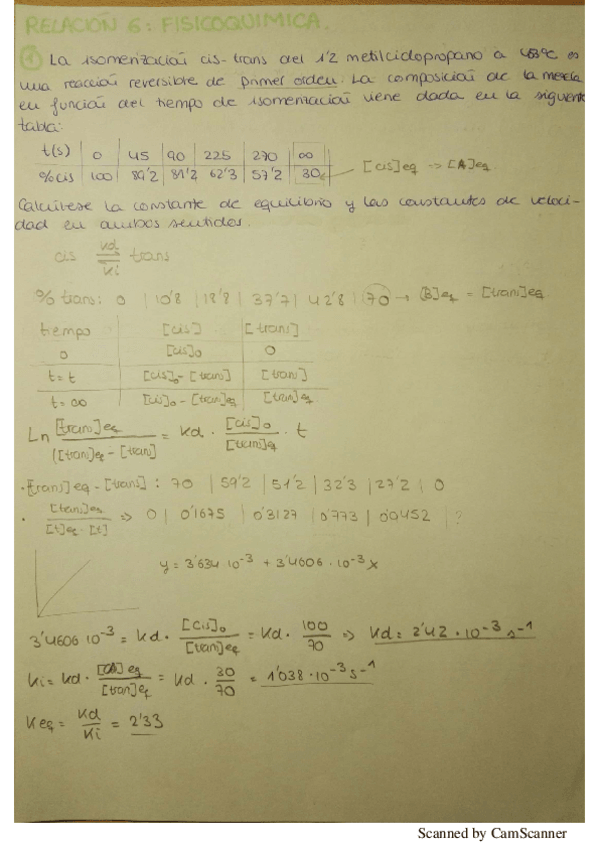 RELACIÓN 6: FISICOQUIMICA.
① La isomerización cis-trans del 1'2 metilciclopropano a 453ºC es
una reacción reversible de primer orden. La composición de la mezcla
en función del tiempo de isomerización viene dada en la siguiente
tabla:
t(s) | 0 | 45 | 90 | 225 | 270 | ∞
%cis | 100 | 89'2 | 81'2 | 62'3 | 57'2 | 30 ← [cis]eq => [A]eq.
Calcúlese la constante de equilibrio y las constantes de veloci-
dad en ambos sentidos.
cis ⇌ trans
kd
ki
% trans: 0 | 10'8 | 18'8 | 37'7 | 42'8 | 70 → [B]eq = [trans]eq
tiempo | [cis] | [trans]
0 | [cis]₀ | 0
t=t | [cis]₀ - [trans] | [trans]
t=∞ | [cis]₀ - [trans]eq | [trans]eq
Ln [trans]eq / ([trans]eq - [trans]) = kd · [cis]₀ / [trans]eq · t
· [trans]eq - [trans] : 70 | 59'2 | 51'2 | 32'3 | 27'2 | 0
· [trans]eq / [t]eq - [t] => 0 | 0'1675 | 0'3127 | 0'773 | 0'0452 | ?
y = 3'634 10⁻³ + 3'4606 · 10⁻³ x
3'4606 10⁻³ = kd · [cis]₀ / [trans]eq = kd · 100 / 70 => kd = 2'42 · 10⁻³ s⁻¹
ki = kd · eq / [tran]eq = kd · 30 / 70 = 1'038 · 10⁻³ s⁻¹
Keq = kd / ki = 2'33
Scanned by CamScanner